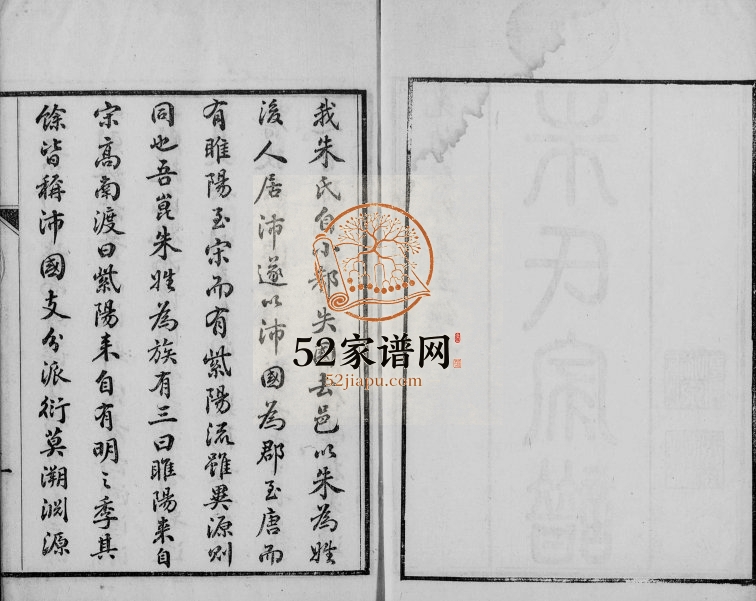 我朱氏自小邾失國去邑以朱為姓
後人居沛遂以沛國為郡至唐而
有睢陽至宋而有紫陽流雖異源則
同也吾崑朱姓為族有三曰睢陽来自
宋高南渡曰紫陽来自有明之季其
餘皆稱沛國支分派衍莫溯淵源
52家谱网
52jiapu.com